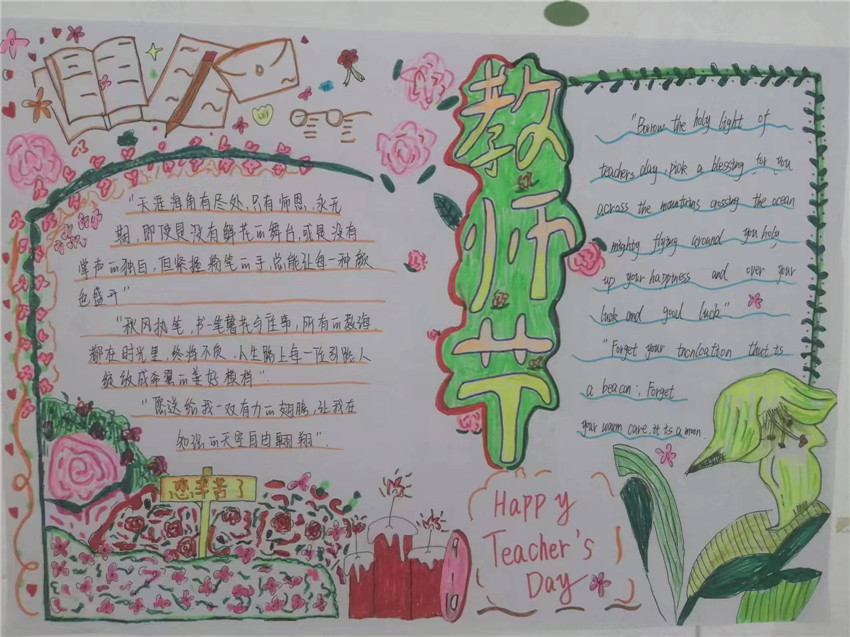 教师节
"天涯海角有尽处,只有师恩,永无
期,即使是没有鲜花的舞台,或是没有
掌声的独白,但紧握粉笔的手,总能让每一种颜
色盛开"
"秋风执笔,书一笔馨花与往事,所有的教诲
都在时光里,终将不负,人生路上每一位引路人
绽放成希冀的美好模样".
"愿送给我一双有力的翅膀,让我在
知识的天空自由翱翔".
您辛苦了
9
10
Happy
Teacher's
Day
"Borrow the holy light of
teachers day, pick a blessing for you
across the mountains crossing the ocean
mighty flying around you holy
up your happiness and over your
luck and good luck"
"Forget your that is
a beacon; Forget
your warm care, it is a moon